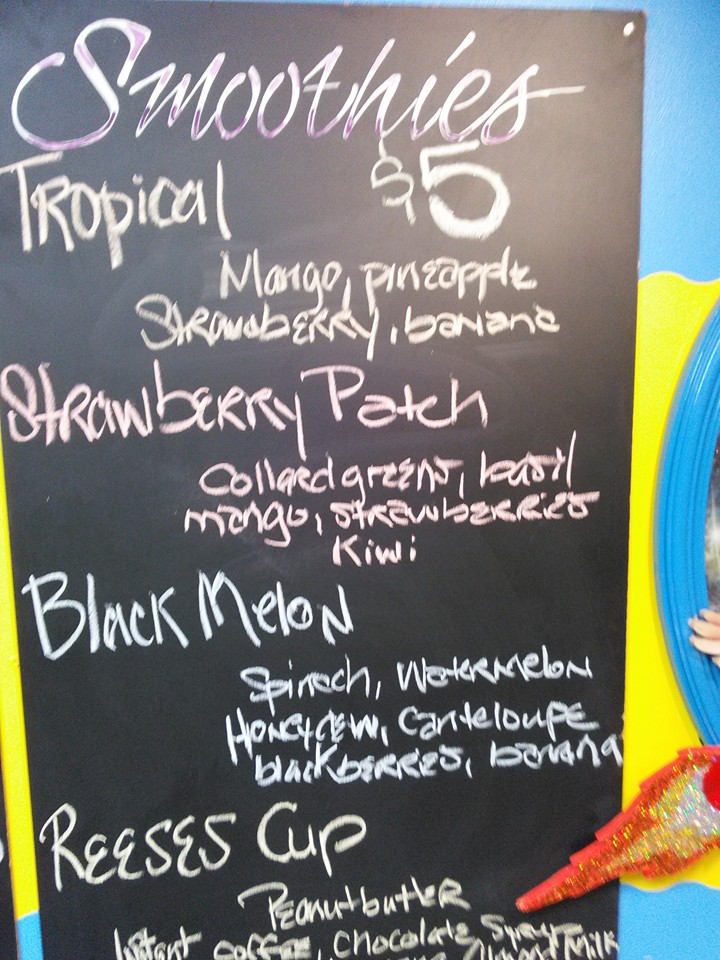 Smoothies
Tropical $5
Mango, pineapple
Strawberry, banana
Strawberry Patch
Collard greens, basil
mango, strawberries
Kiwi
Black Melon
Spinach, Watermelon
Honeydew, Canteloupe
blackberries, banana
REESES Cup
Peanutbutter
Instant coffee, Chocolate Syrup
Almond Milk